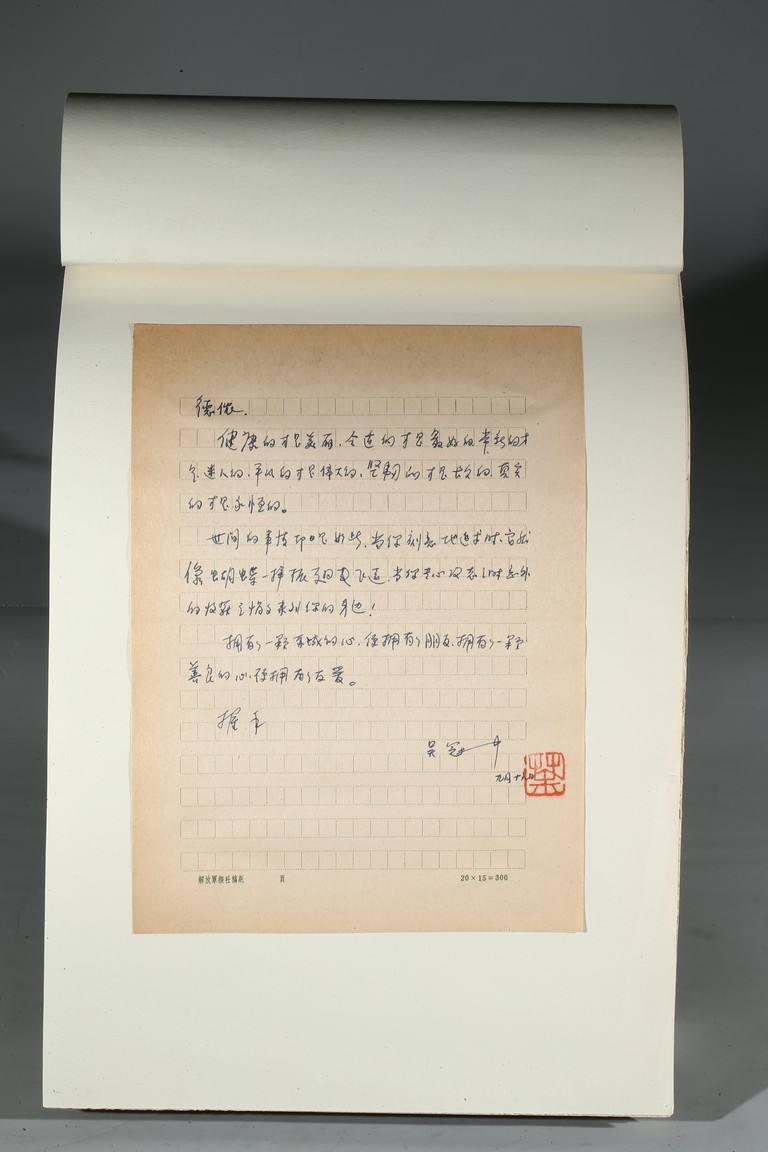 德侬.
健康的才是美丽,合适的才是最好的,常新的才
是迷人的,平凡的才是伟大的,坚韧的才是长久的,真实
的才是永恒的。
世间的事情却是如此,当你刻意地追求时,它就
像蝴蝶一样振翅飞远,当你专心致志之时,意外
的收获已悄悄来到你的身边!
拥有了一颗真诚的心,便拥有了朋友,拥有了一颗
善良的心,便拥有了友爱。
握手
吴冠中
九月十九日
葉
解放軍報社稿紙 頁 20×15=300